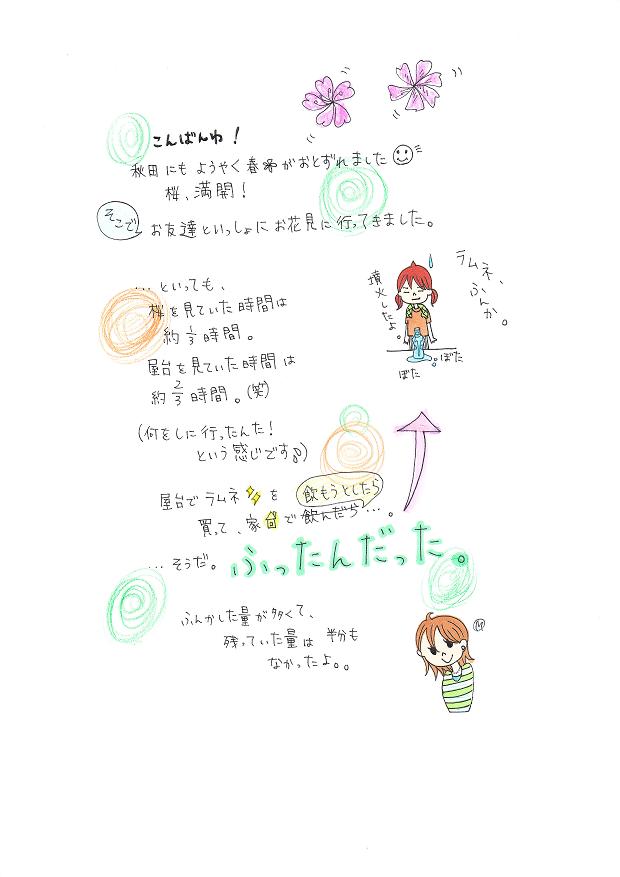 こんばんわ！
秋田にもようやく春がおとずれました
桜、満開！
そこで
お友達といっしょにお花見に行ってきました。
…といっても、
桜を見ていた時間は
約1/3時間。
屋台を見ていた時間は
約2/3時間。(笑)
(何をしに行ったんだ！
という感じです♪)
ラムネ、
ふんか。
噴火したよ。
ぼた
ぼた
屋台でラムネを
飲もうとしたら
買って、家で飲んだら…。
…そうだ。ふったんだった。
ふんかした量が多くて、
残っていた量は半分も
なかったよ。。
M